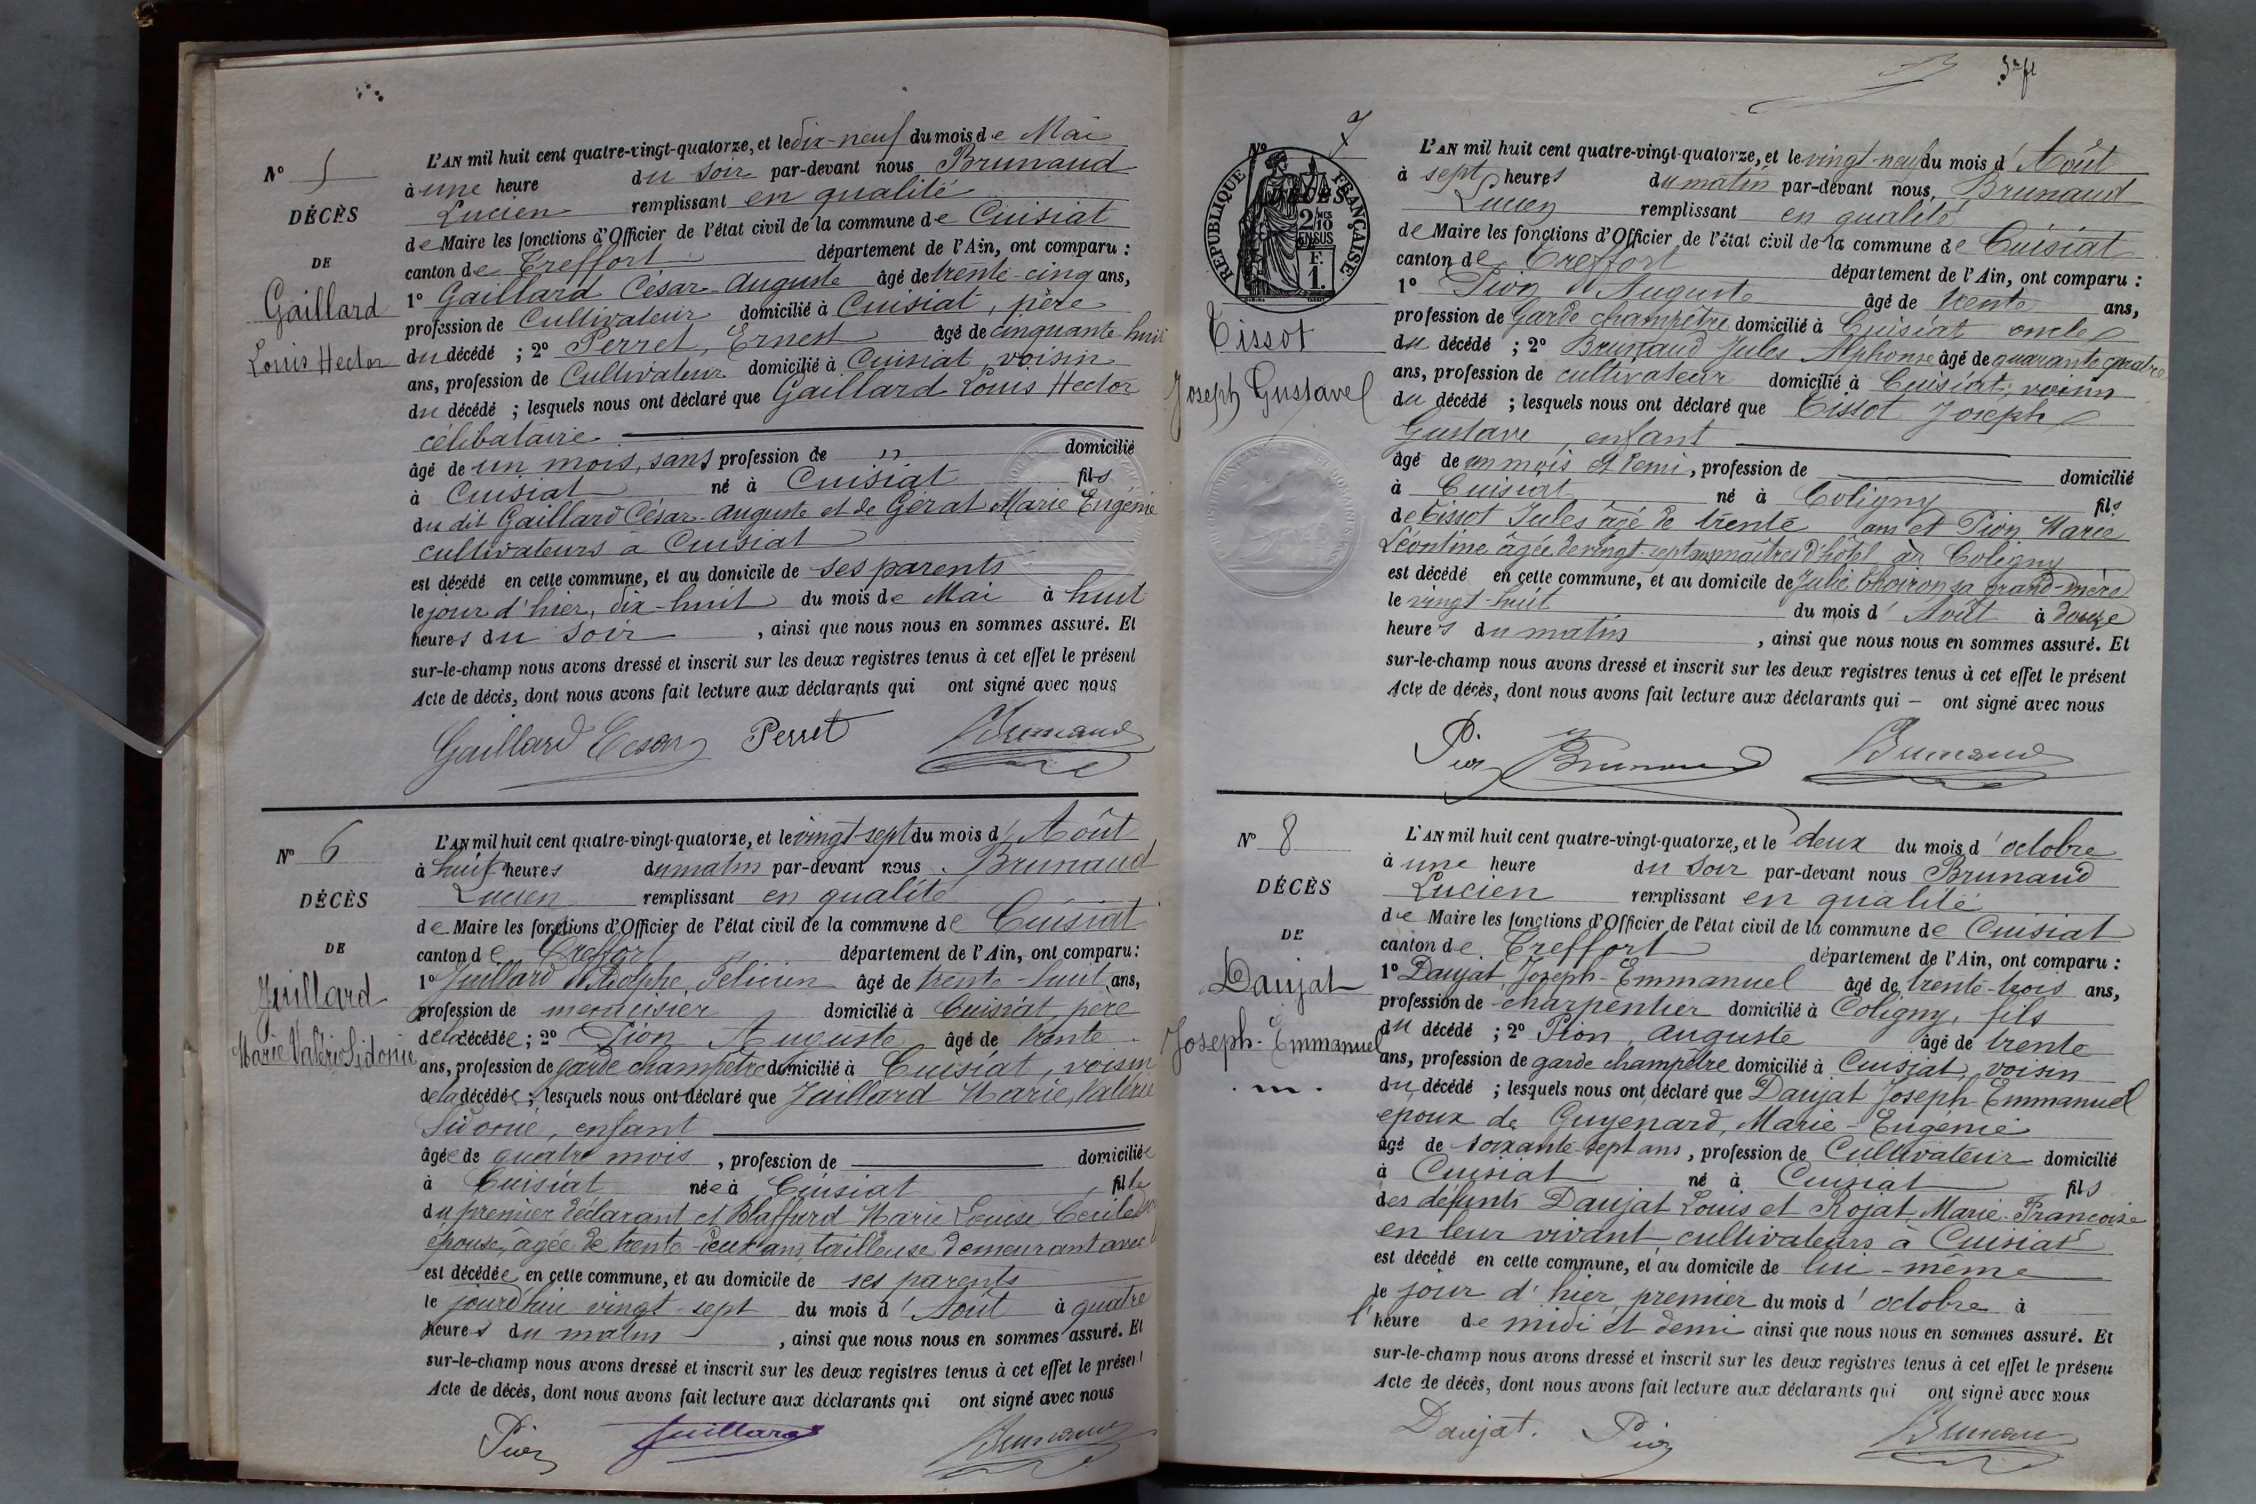 N° 5
DÉCÈS
DE
Gaillard
Louis Hector
L'AN mil huit cent quatre-vingt-quatorze, et le dix-neuf du mois de Mai
à une heure du soir par-devant nous Brunaud
Lucien remplissant en qualité
de Maire les fonctions d'Officier de l'état civil de la commune de Cuisiat
canton de Treffort département de l'Ain, ont comparu :
1° Gaillard César-Auguste âgé de trente-cinq ans,
profession de Cultivateur domicilié à Cuisiat, père
du décédé ; 2° Perret, Ernest âgé de cinquante huit
ans, profession de Cultivateur domicilié à Cuisiat, voisin
du décédé ; lesquels nous ont déclaré que Gaillard Louis Hector
célibataire
âgé de un mois, sans profession de " domicilié
à Cuisiat né à Cuisiat fils
du dit Gaillard César-Auguste et de Gérat Marie Eugénie
cultivateurs à Cuisiat
est décédé en cette commune, et au domicile de ses parents
le jour d'hier, dix-huit du mois de Mai à huit
heures du soir, ainsi que nous nous en sommes assuré. Et
sur-le-champ nous avons dressé et inscrit sur les deux registres tenus à cet effet le présent
Acte de décès, dont nous avons fait lecture aux déclarants qui ont signé avec nous
Gaillard César Perret Brunaud
N° 6
DÉCÈS
DE
Juillard
Marie Valérie Sidonie
L'AN mil huit cent quatre-vingt-quatorze, et le vingt-sept du mois d'Août
à huit heures du matin par-devant nous Brunaud
Lucien remplissant en qualité
de Maire les fonctions d'Officier de l'état civil de la commune de Cuisiat
canton de Treffort département de l'Ain, ont comparu :
1° Juillard Adolphe Félicien âgé de trente-huit ans,
profession de menuisier domicilié à Cuisiat, père
de la décédée ; 2° Pion Auguste âgé de trente
ans, profession de garde champêtre domicilié à Cuisiat, voisin
de la décédée ; lesquels nous ont déclaré que Juillard Marie, Valérie
Sidonie, enfant
âgée de quatre mois, profession de domiciliée
à Cuisiat née à Cuisiat fille
du premier déclarant et Blaffard Marie Louise Cécile son
épouse, âgée de trente-deux ans, tailleuse demeurant avec
est décédée en cette commune, et au domicile de ses parents
le jourd'hui vingt-sept du mois d'Août à quatre
heures du matin, ainsi que nous nous en sommes assuré. Et
sur-le-champ nous avons dressé et inscrit sur les deux registres tenus à cet effet le présent
Acte de décès, dont nous avons fait lecture aux déclarants qui ont signé avec nous
Pion Juillard Brunaud
N° 7
RÉPUBLIQUE FRANÇAISE
DÉCÈS
2/10 EN SUS
F. 1.
Tissot
Joseph Gustave
L'AN mil huit cent quatre-vingt-quatorze, et le vingt-neuf du mois d'Août
à sept heures du matin par-devant nous, Brunaud
Lucien remplissant en qualité
de Maire les fonctions d'Officier de l'état civil de la commune de Cuisiat
canton de Treffort département de l'Ain, ont comparu :
1° Pion Auguste âgé de trente ans,
profession de Garde champêtre domicilié à Cuisiat oncle
du décédé ; 2° Brunaud Jules Alphonse âgé de quarante quatre
ans, profession de cultivateur domicilié à Cuisiat, voisin
du décédé ; lesquels nous ont déclaré que Tissot Joseph
Gustave, enfant
âgé de un mois et demi, profession de domicilié
à Cuisiat né à Coligny fils
de Tissot Jules âgé de trente ans et Pion Marie
Léontine âgée de vingt-sept ans maîtres d'hôtel à Coligny
est décédé en cette commune, et au domicile de Julie Choiron sa grand-mère
le vingt-huit du mois d'Août à douze
heures du matin, ainsi que nous nous en sommes assuré. Et
sur-le-champ nous avons dressé et inscrit sur les deux registres tenus à cet effet le présent
Acte de décès, dont nous avons fait lecture aux déclarants qui — ont signé avec nous
Pion Brunaud Brunaud
N° 8
DÉCÈS
DE
Daujat
Joseph-Emmanuel
L'AN mil huit cent quatre-vingt-quatorze, et le deux du mois d'octobre
à une heure du soir par-devant nous Brunaud
Lucien remplissant en qualité
de Maire les fonctions d'Officier de l'état civil de la commune de Cuisiat
canton de Treffort département de l'Ain, ont comparu :
1° Daujat Joseph-Emmanuel âgé de trente-trois ans,
profession de charpentier domicilié à Coligny, fils
du décédé ; 2° Pion, auguste âgé de trente
ans, profession de garde champêtre domicilié à Cuisiat, voisin
du décédé ; lesquels nous ont déclaré que Daujat Joseph-Emmanuel
époux de Guyenard, Marie-Eugénie
âgé de soixante-sept ans, profession de Cultivateur domicilié
à Cuisiat né à Cuisiat fils
des défunts Daujat Louis et Rojat Marie-Françoise
en leur vivant cultivateurs à Cuisiat
est décédé en cette commune, et au domicile de lui-même
le jour d'hier, premier du mois d'octobre à
l'heure de midi et demi ainsi que nous nous en sommes assuré. Et
sur-le-champ nous avons dressé et inscrit sur les deux registres tenus à cet effet le présent
Acte de décès, dont nous avons fait lecture aux déclarants qui ont signé avec nous
Daujat. Pion Brunaud